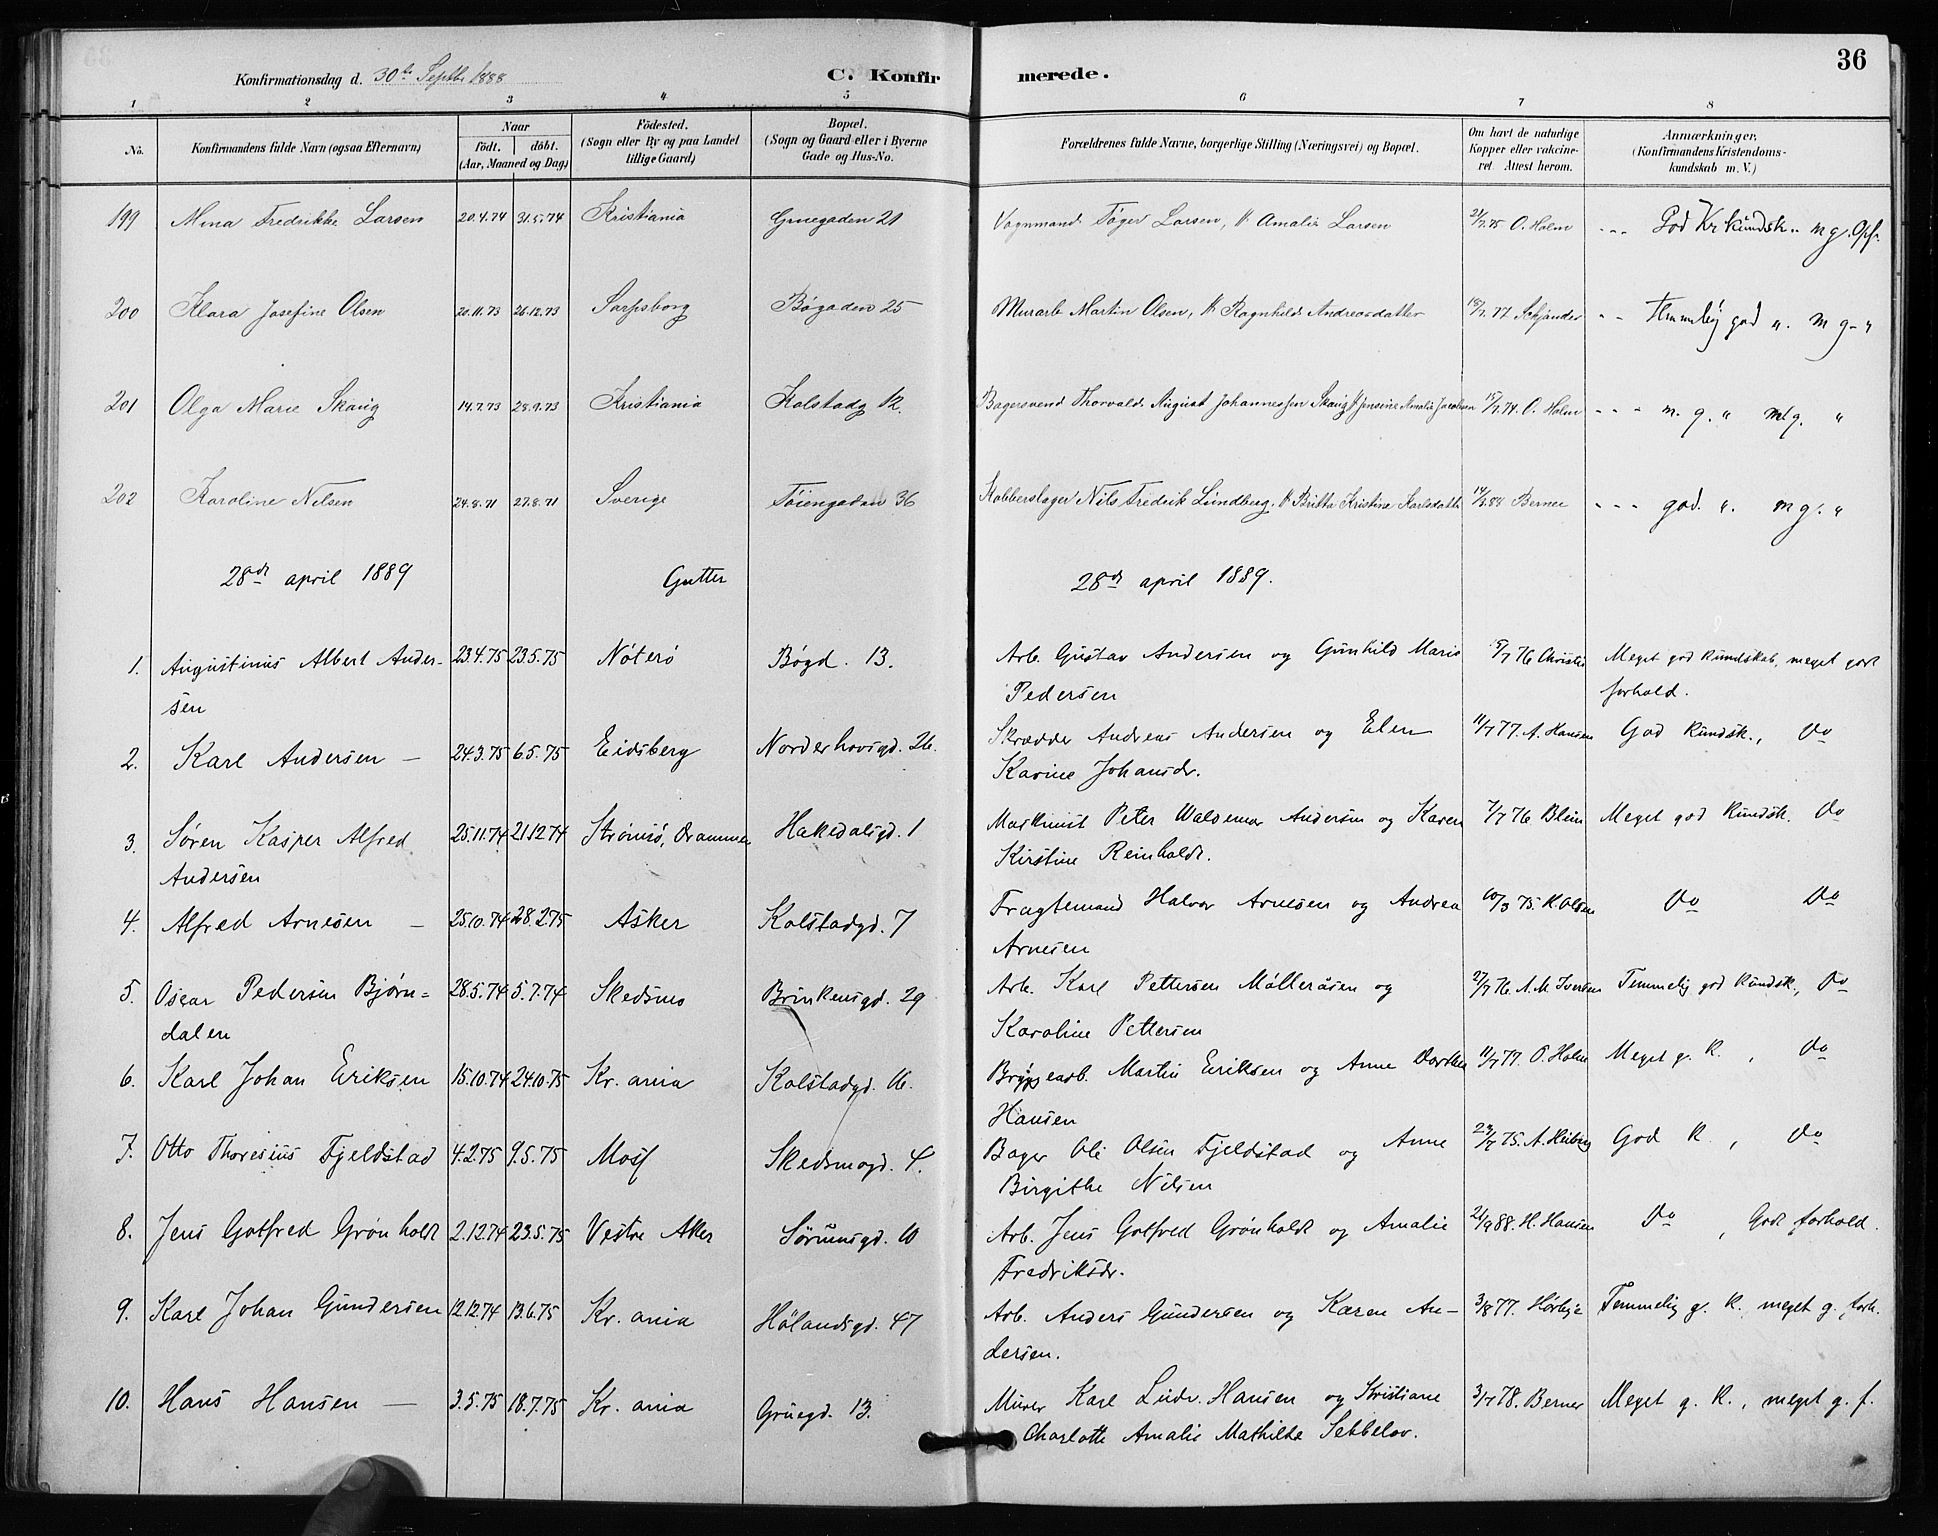 36
Konfirmationsdag d. 30te Septbr 1888
C. Konfirmerede.
1 2 3 4 5 6 7 8
No.
Konfirmandens fulde Navn (ogsaa Efternavn)
Naar
födt. döbt.
(Aar, Maaned og Dag)
Födested.
(Sogn eller By og paa Landet
tillige Gaard)
Bopæl.
(Sogn og Gaard eller i Byerne
Gade og Hus-No.
Forældrenes fulde Navne, borgerlige Stilling (Næringsvei) og Bopæl.
Om havt de naturlige
Kopper eller vakcine-
ret Attest herom.
Anmærkninger.
(Konfirmandens Kristendoms-
kundskab m. V.)
199 Mina Fredrikke Larsen 20.4.74 31.5.74 Kristiania Gruegaden 21 Vognmand Töger Larsen, & Amalie Larsen 21/7.75 O. Holm - - - God Kr kundsk.. m g. Opf.
200 Klara Josefine Olsen 20.11.73 26.12.73 Sarpsborg Bøgaden 25 Murarb Martin Olsen, & Ragnhild Andreasdatter 18/7.77 Schjander - - Temmelig god ". m g - "
201 Olga Marie Skaug 14.7.73 28.9.73 Kristiania Kolstadg 12. Bagersvend Thorvald August Johannessen Skaug & Jensine Amalie Jacobsen 15/7.74. O. Holm - - - m. g. " mg. "
202 Karoline Nilsen 24.8.71 27.8.71 Sverige Töiengaden 36 Kobberslager Nils Fredrik Lundberg, & Britta Kristine Karlsdatter 14/3.84 Berner - - - god. ". m g. "
28de april 1889 Gutter 28de april 1889.
1. Augustinus Albert Ander- 23.4.75 23.5.75 Nöterö Bøgd. 13. Arb. Gustav Andersen og Gunhild Marie /7 76 Christie Meget god kundskab, meget godt
sen Pedersen forhold.
2. Karl Andersen — 24.3.75 6.5.75 Eidsberg Norderhovsgd. 26. Skrædder Andreas Andersen og Elen 11/7 77. A. Hansen God kundsk., do
Karine Johansdr.
3. Søren Kasper Alfred 25.11.74 21.12.74 Strömsö, Drammen Hakedalsgd. 1 Maskinist Peter Waldemar Andersen og Karen 7/7 76 Meget god kundsk. do
Andersen Kirstine Reinholdt.
4. Alfred Arnesen — 25.10.74 28.2.75 Asker Kolstadgd. 7 Fragtemand Halvor Arnesen og Andrea 10/3 75. K Olsen do do
Arnesen
5. Oscar Pedersen Bjørn= 28.5.74 5.7.74 Skedsmo Brinkensgd. 29 Arb. Karl Pettersen Mölleråsen og 27/7 76. A. M. Iversen Temmelig god kundsk., do
dalen Karoline Pettersen
6. Karl Johan Eriksen 15.10.74 24.10.75 Kr. ania Kolstadgd. 16. Bryggearb. Martin Eriksen og Anne Dorthea 11/7 77. O. Holm Meget g. k., do
Hansen
7. Otto Thoresius Fjeldstad 4.2.75 9.5.75 Moss Skedsmogd. 4. Bager Ole Olsen Fjeldstad og Anne 23/7 75. A. Heiberg God k., do
Birgithe Nilsen
8. Jens Gotfred Grönholdt 2.12.74 23.5.75 Vestre Aker Sörumsgd. 10 Arb. Jens Gotfred Grönholdt og Amalie 21/9 88. H. Hansen do, Godt forhold.
Fredriksdr.
9. Karl Johan Gundersen 12.12.74 13.6.75 Kr. ania Hölandsgd. 47 Arb. Anders Gundersen og Karen An- 3/8 77. Hörbye Temmelig g. k., meget g. forh.
dersen.
10. Hans Hansen — 3.5.75 18.7.75 Kr. ania Gruegd. 13. Murer Karl Ludv. Hansen og Kristiane 3/7 78. Berner Meget g. k., meget g. f.
Charlotte Amalie Mathilde Sebbelov.